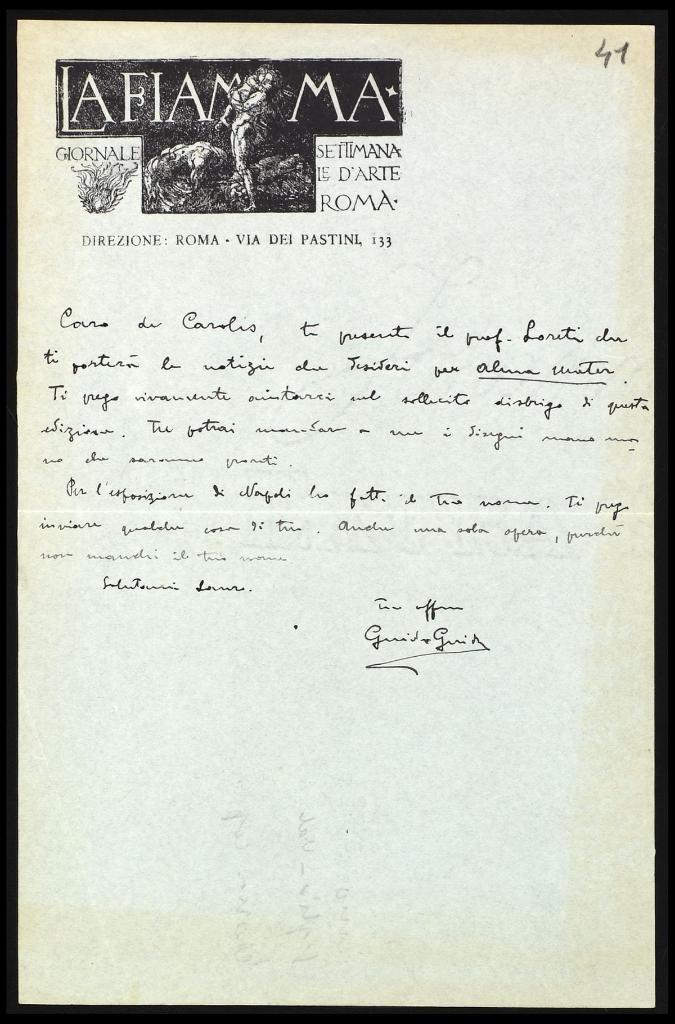 41
LA FIAMMA
GIORNALE SETTIMANA
LE D'ARTE
ROMA
DIREZIONE: ROMA - VIA DEI PASTINI, 133
Caro de Carolis, ti presento il prof. Loreti che
ti porterà le notizie che desideri per alma mater.
Ti prego vivamente aiutarci nel sollecito disbrigo di questa
edizione. Tu potrai mandar a me i disegni mano ma-
no che saranno pronti.
Per l'esposizione di Napoli ho fatto il tuo nome. Ti prego
inviare qualche cosa di tuo. Anche una sola opera, purchè
non manchi il tuo nome
Salutami
tuo affmo
Guido Guida